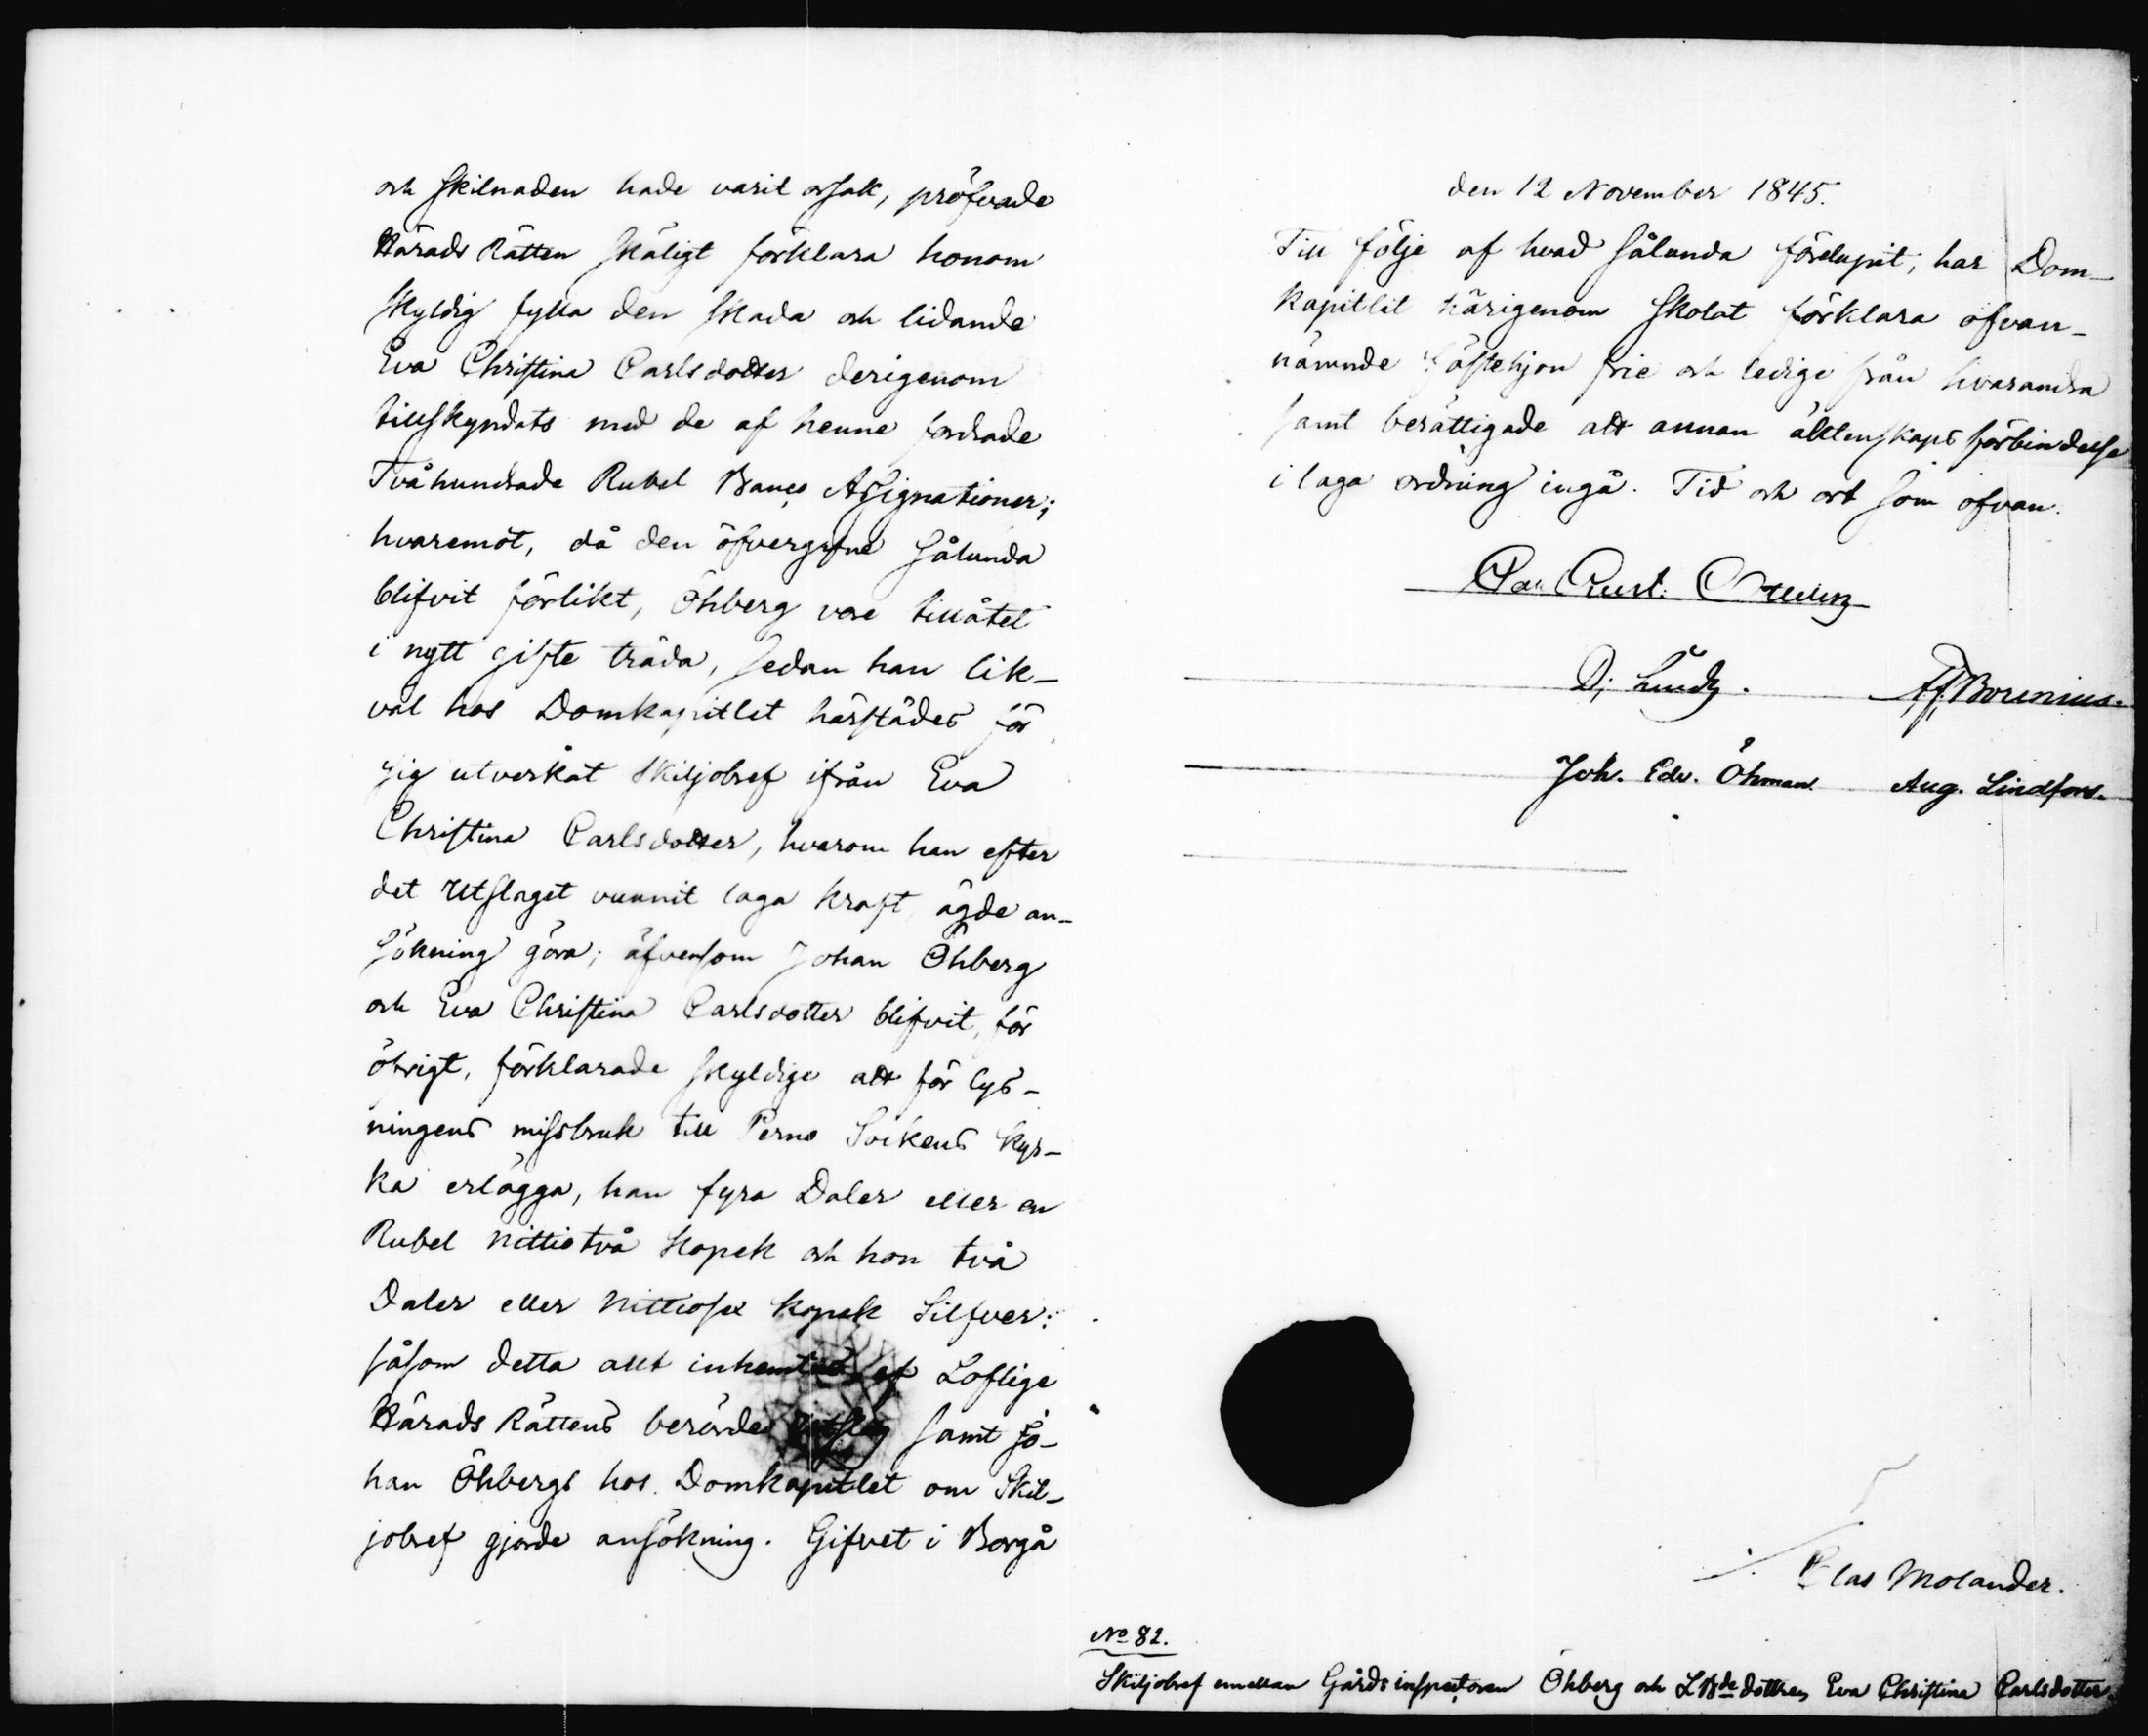 och skilnaden hade varit orsak, pröfvade
Härads Rätten skäligt förklara honom
skyldig fylla den skada och lidande
Eva Christina Carlsdotter derigenom
tillskyndats med de af henne fordrade
Tvåhundrade Rubel Banco Assignationer;
hvaremot, då den öfvergifne sålunda
blifvit förlikt, Öhberg vore tillåtet
i nytt gifte träda, sedan han lik-
väl hos Domkapitlet härstädes för
sig utverkat skiljobref ifrån Eva
Christina Carlsdotter, hvarom han efter
det Utslaget vunnit laga kraft ägde an-
sökning göra; äfvensom Johan Öhberg
och Eva Christina Carlsdotter blifvit, för
öfrigt, förklarade skyldige att för lys-
ningens missbruk till Perno Sockens kyr-
ka erlägga, han fyra Daler eller en
Rubel nittiotvå kopek och hon två
Daler eller nittiosex kopek Silfver:
såsom detta allt inhemtas af Loflige
Härads Rättens berörde Utslag samt Jo-
han Öhbergs hos Domkapitlet om Skil-
jobref gjorde ansökning. Gifvet i Borgå
den 12 November 1845.
Till följe af hvad sålunda förelupit, har Dom-
kapitlet härigenom skolat förklara ofvan-
nämnde fästehjon frie och ledige från hvarandra
samt berättigade att annan äktenskaps förbindelse
i laga ordning ingå. Tid och ort som ofvan.
D. Lindh. Borenius.
Joh. Edv. Öhman. Aug. Lindfors.
Clas Molander.
No 82.
Skiljobref emellan Gårdsinspectoren Öhberg och LBde dottren Eva Christina Carlsdotter